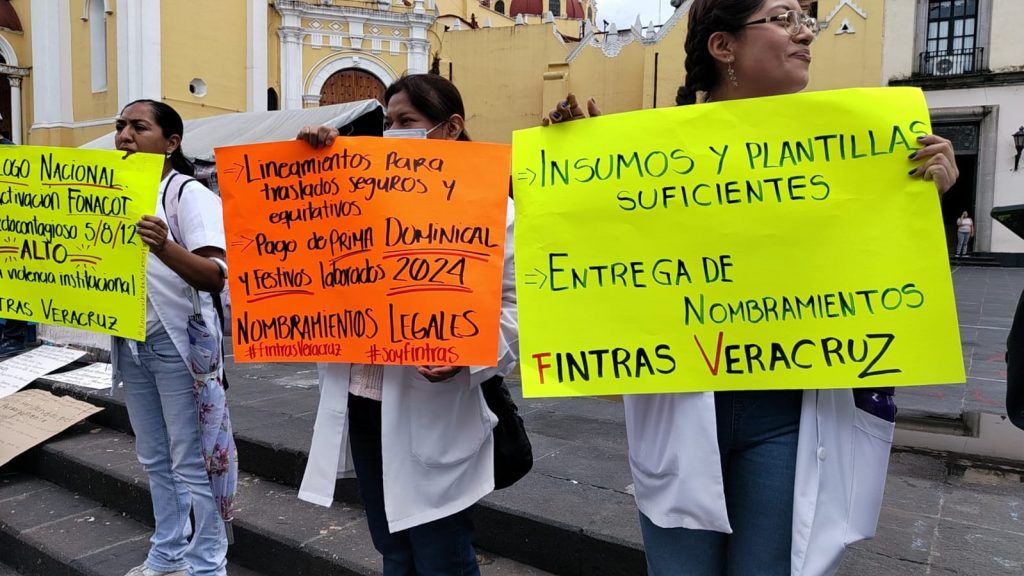 LOGO NACIONAL
activación FONACOT
5/8/12
ALTO
violencia institucional
VERACRUZ
⇒ LINEAMIENTOS PARA
traslados seguros y
equitativos
⇒ PAGO de PRIMA DOMINICAL
y FESTIVOS laborados 2024
NOMBRAMIENTOS LEGALES
#fintrasVeracruz #soyfintras
⇒ INSUMOS Y PLANTILLAS
SUFICIENTES
⇒ ENTREGA DE
NOMBRAMIENTOS
FINTRAS VERACRUZ